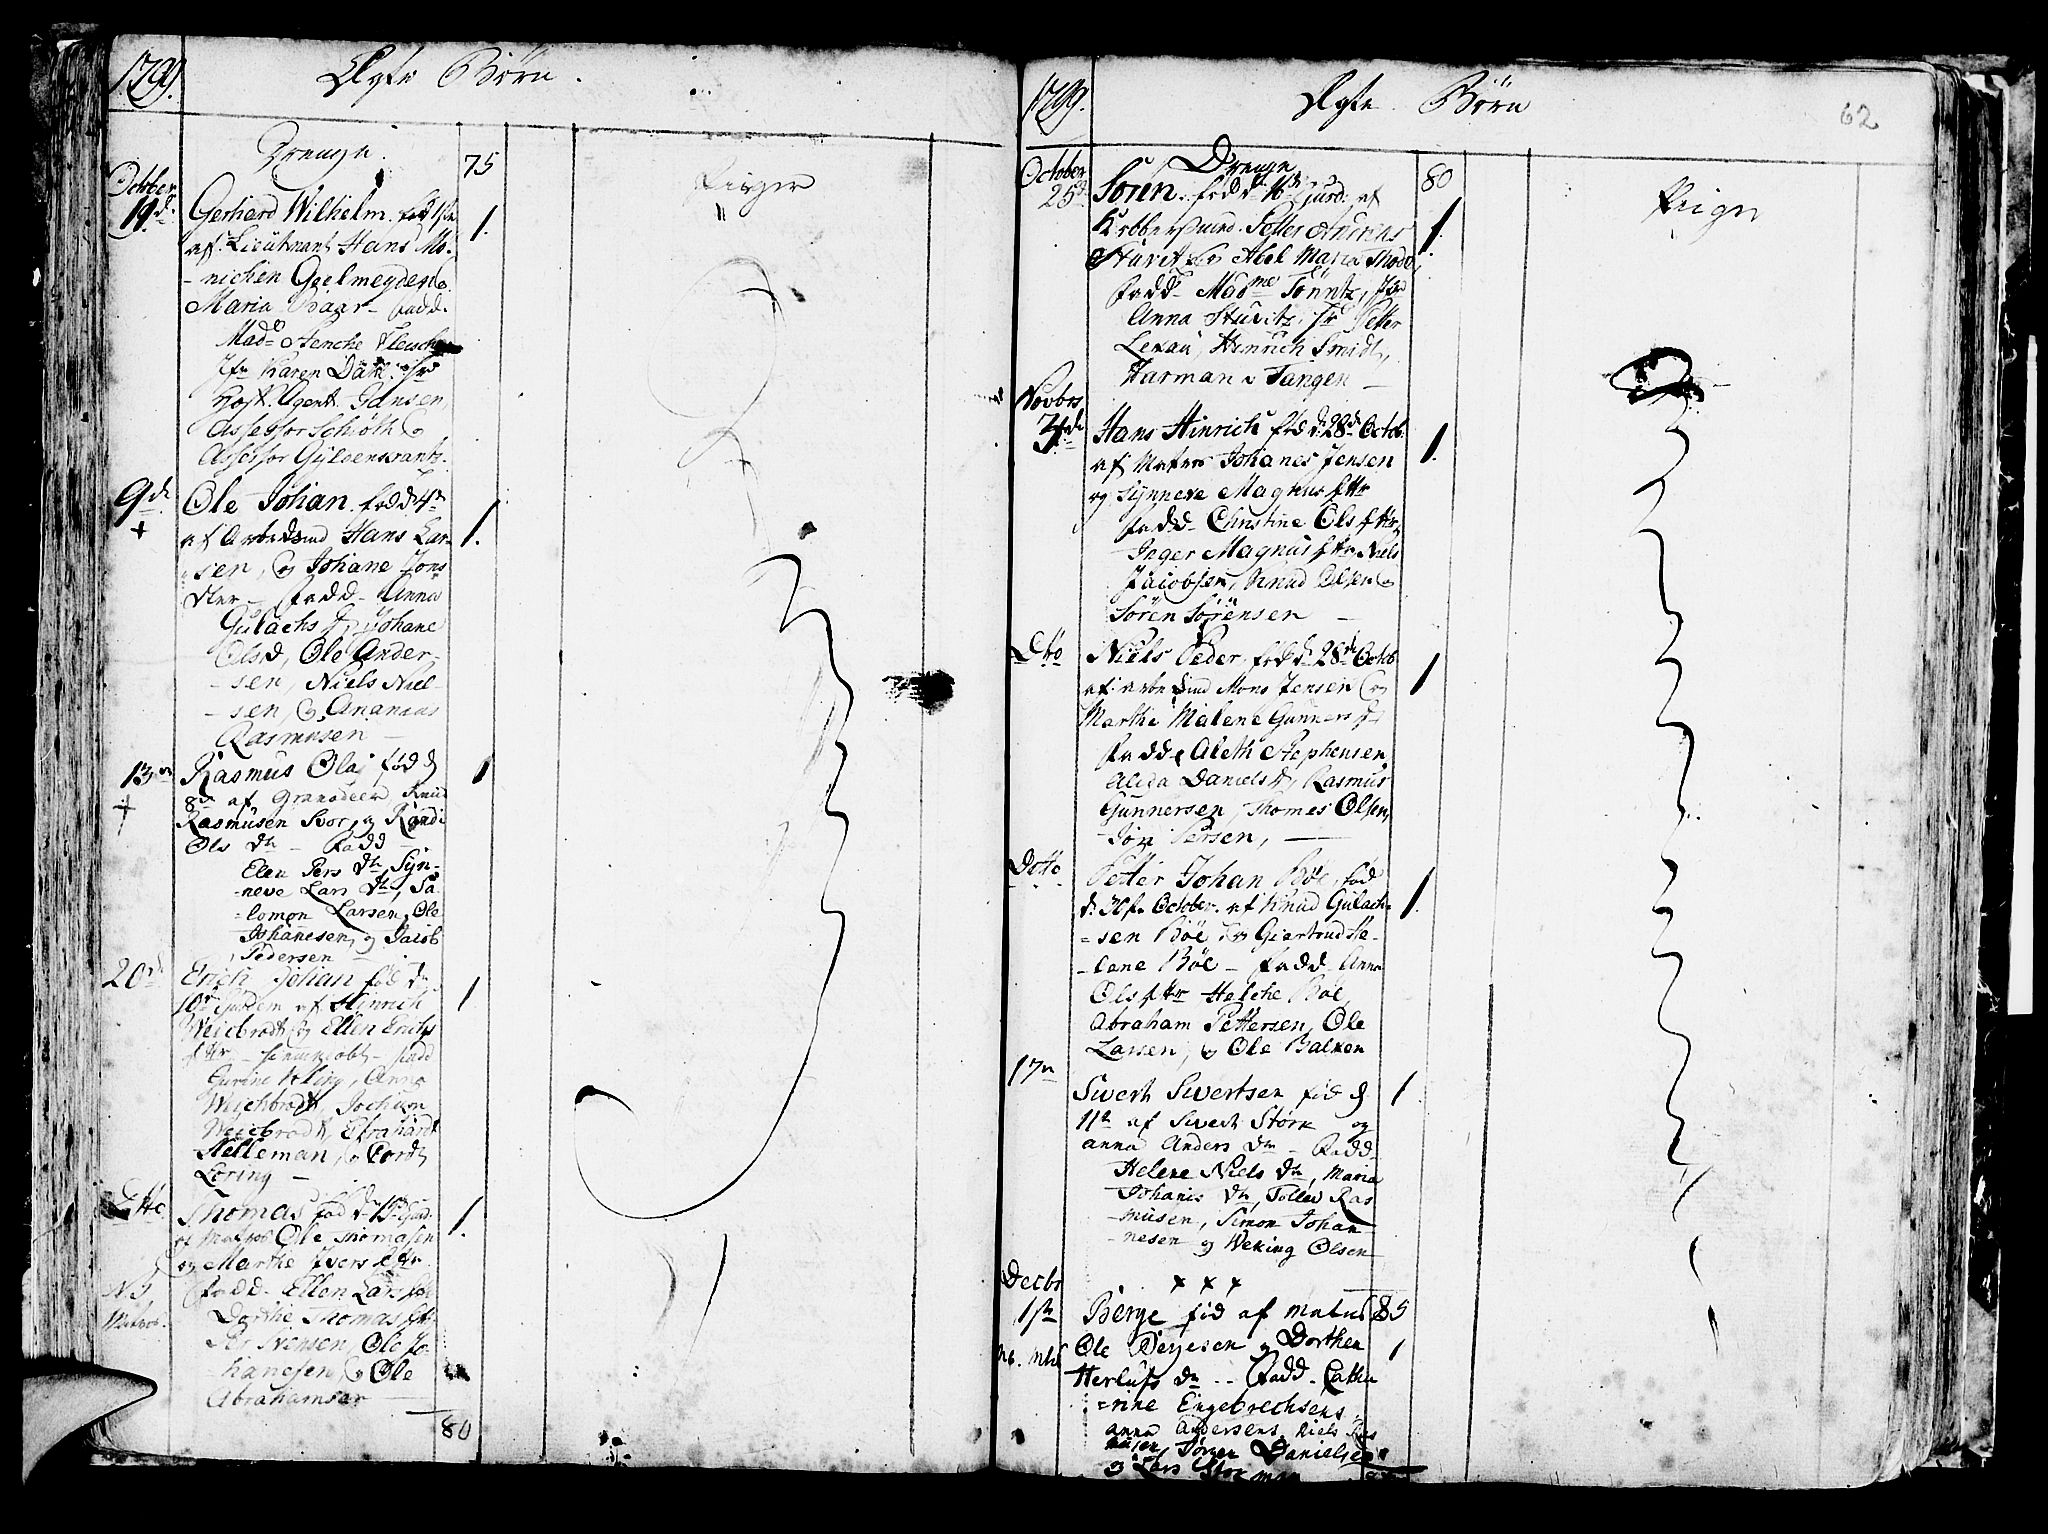 1799.
Ægte Børn.
Drenge.
75
Piger
October
19de
Gerhard Wilhelm. fød
1.
af Lieutnant Hans Mo-
-nichen Geelmeyden &
Maria Baar - fadd.
Made Stenche Fleischer
Jfr Karen Dahl. Hr
Hof. Agent Jansen,
Assessor Schiøth &
Assessor Gyldenkrantz.
9de
Ole Johan. fød d 4de
+
af Arbedsmd Hans Lar-
1.
sen, & Johane Jons
dter - fadd - Anna
Gulachs d, Johane
Olsd, Ole Ander-
-sen, Niels Niel-
-sen, & Ananias
Rasmusen -
13de
Rasmus Olai fød d
1
+
8de af Granadeer Knud
Rasmusen Svor, og Randi
Ols Dtr - Fadd -
Elen Pers Dtr, Syn-
-neve Lars Dtr, Sa-
=lomon Larsen, Ole
Johanesen, og Jacob
Pedersen -
20de
Erich Johan fød d
10de ejusdem af Hinrich
1
Weichbrodt og Ellen Erichs
fttr - fadd
Gurine Kling, Anna
Weichbrodt, Jochum
Weichbrodt,
Helleman, & Cordt
Loring -
Ditto
Thomas fød d 15de Ejusd.
1.
af Matros Ole Thomasen
og Marthe Ivers dttr
NB
fadd - Ellen Lars
Matros.
Dorthe Thomas
Per Ivensen, Ole Jo-
hanesen, & Ole
Abrahamsen
80
1799.
Ægte Børn
62
Drenge
80
Pige
October
25de
Søren. fød d 16de Ejusd: af
Kobbersmed Petter Andreas
1.
Sturitz & Abel Maria Thode
fadd - Madme Tönntz, Jfr
Anna Sturitz, Hr Petter
Lexau, Henrich Smidt,
Harman v Tangen -
Novbrs
3de
Hans Hinrich fød d: 28de Octob
1.
af Matros Johanes Jensen
og Synneve Magnus fttr
fadd - Christine Ols fttr,
Inger Magnus fttr Niels
Jacobsen, Knud Olsen &
Søren Sørensen -
Ditto
Niels Peder fød d 28de Octob
1
af arbeidsmd Mons Jensen &
Marthe Malene Gunners f
fadd - Aleth Stephensen
Alida Daniels d, Rasmus
Gunnersen, Thomes Olsen,
Jon Persen, -
Ditto
Petter Johan Böe, fød
1.
d: 30te October. af Knud Gulach-
=sen Böe, & Giertrud He-
-lene Böe - fadd - Anna
Ols fttr Helche Böe,
Abraham Pettersen, Ole
Larsen, & Ole Balken
17de
Sivert Sivertsen fød d
1
11te af Sivert Störk og
anna Anders Dtr - Fadd -
Helene Niels Dtr, Maria
Johanis Dtr, Tollev Ras
musen, Simon Johan
-nesen og Weking Olsen
+ + +
Decbr
1ste
Berge fød af matros
85
NB. Mts
Ole Bergesen og Dorthea
1
Herlufs Dtr - Fadd - Catha
=rine Engebrechsens
anna Andersens, Niels Ras
musen, Jørgen Danielsen
og Lars Störkman